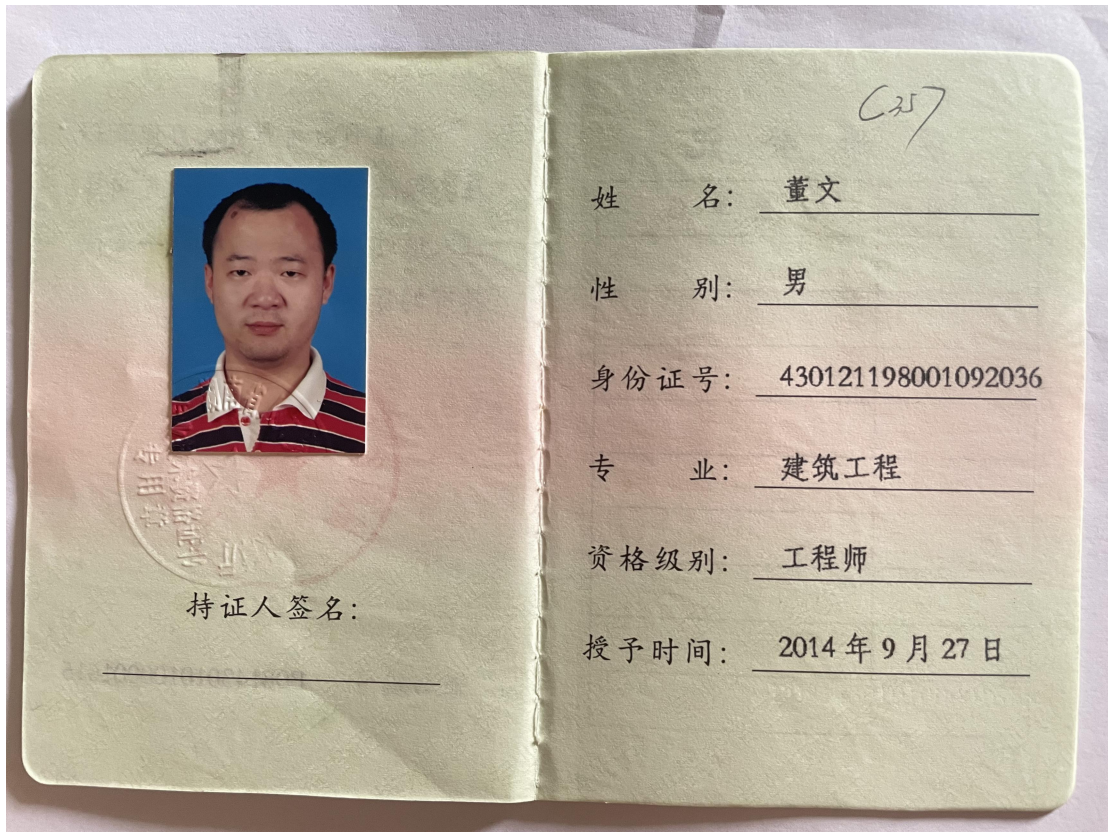 持证人签名：
C357
姓 名： 董文
性 别： 男
身份证号： 430121198001092036
专 业： 建筑工程
资格级别： 工程师
授予时间： 2014 年 9 月 27 日